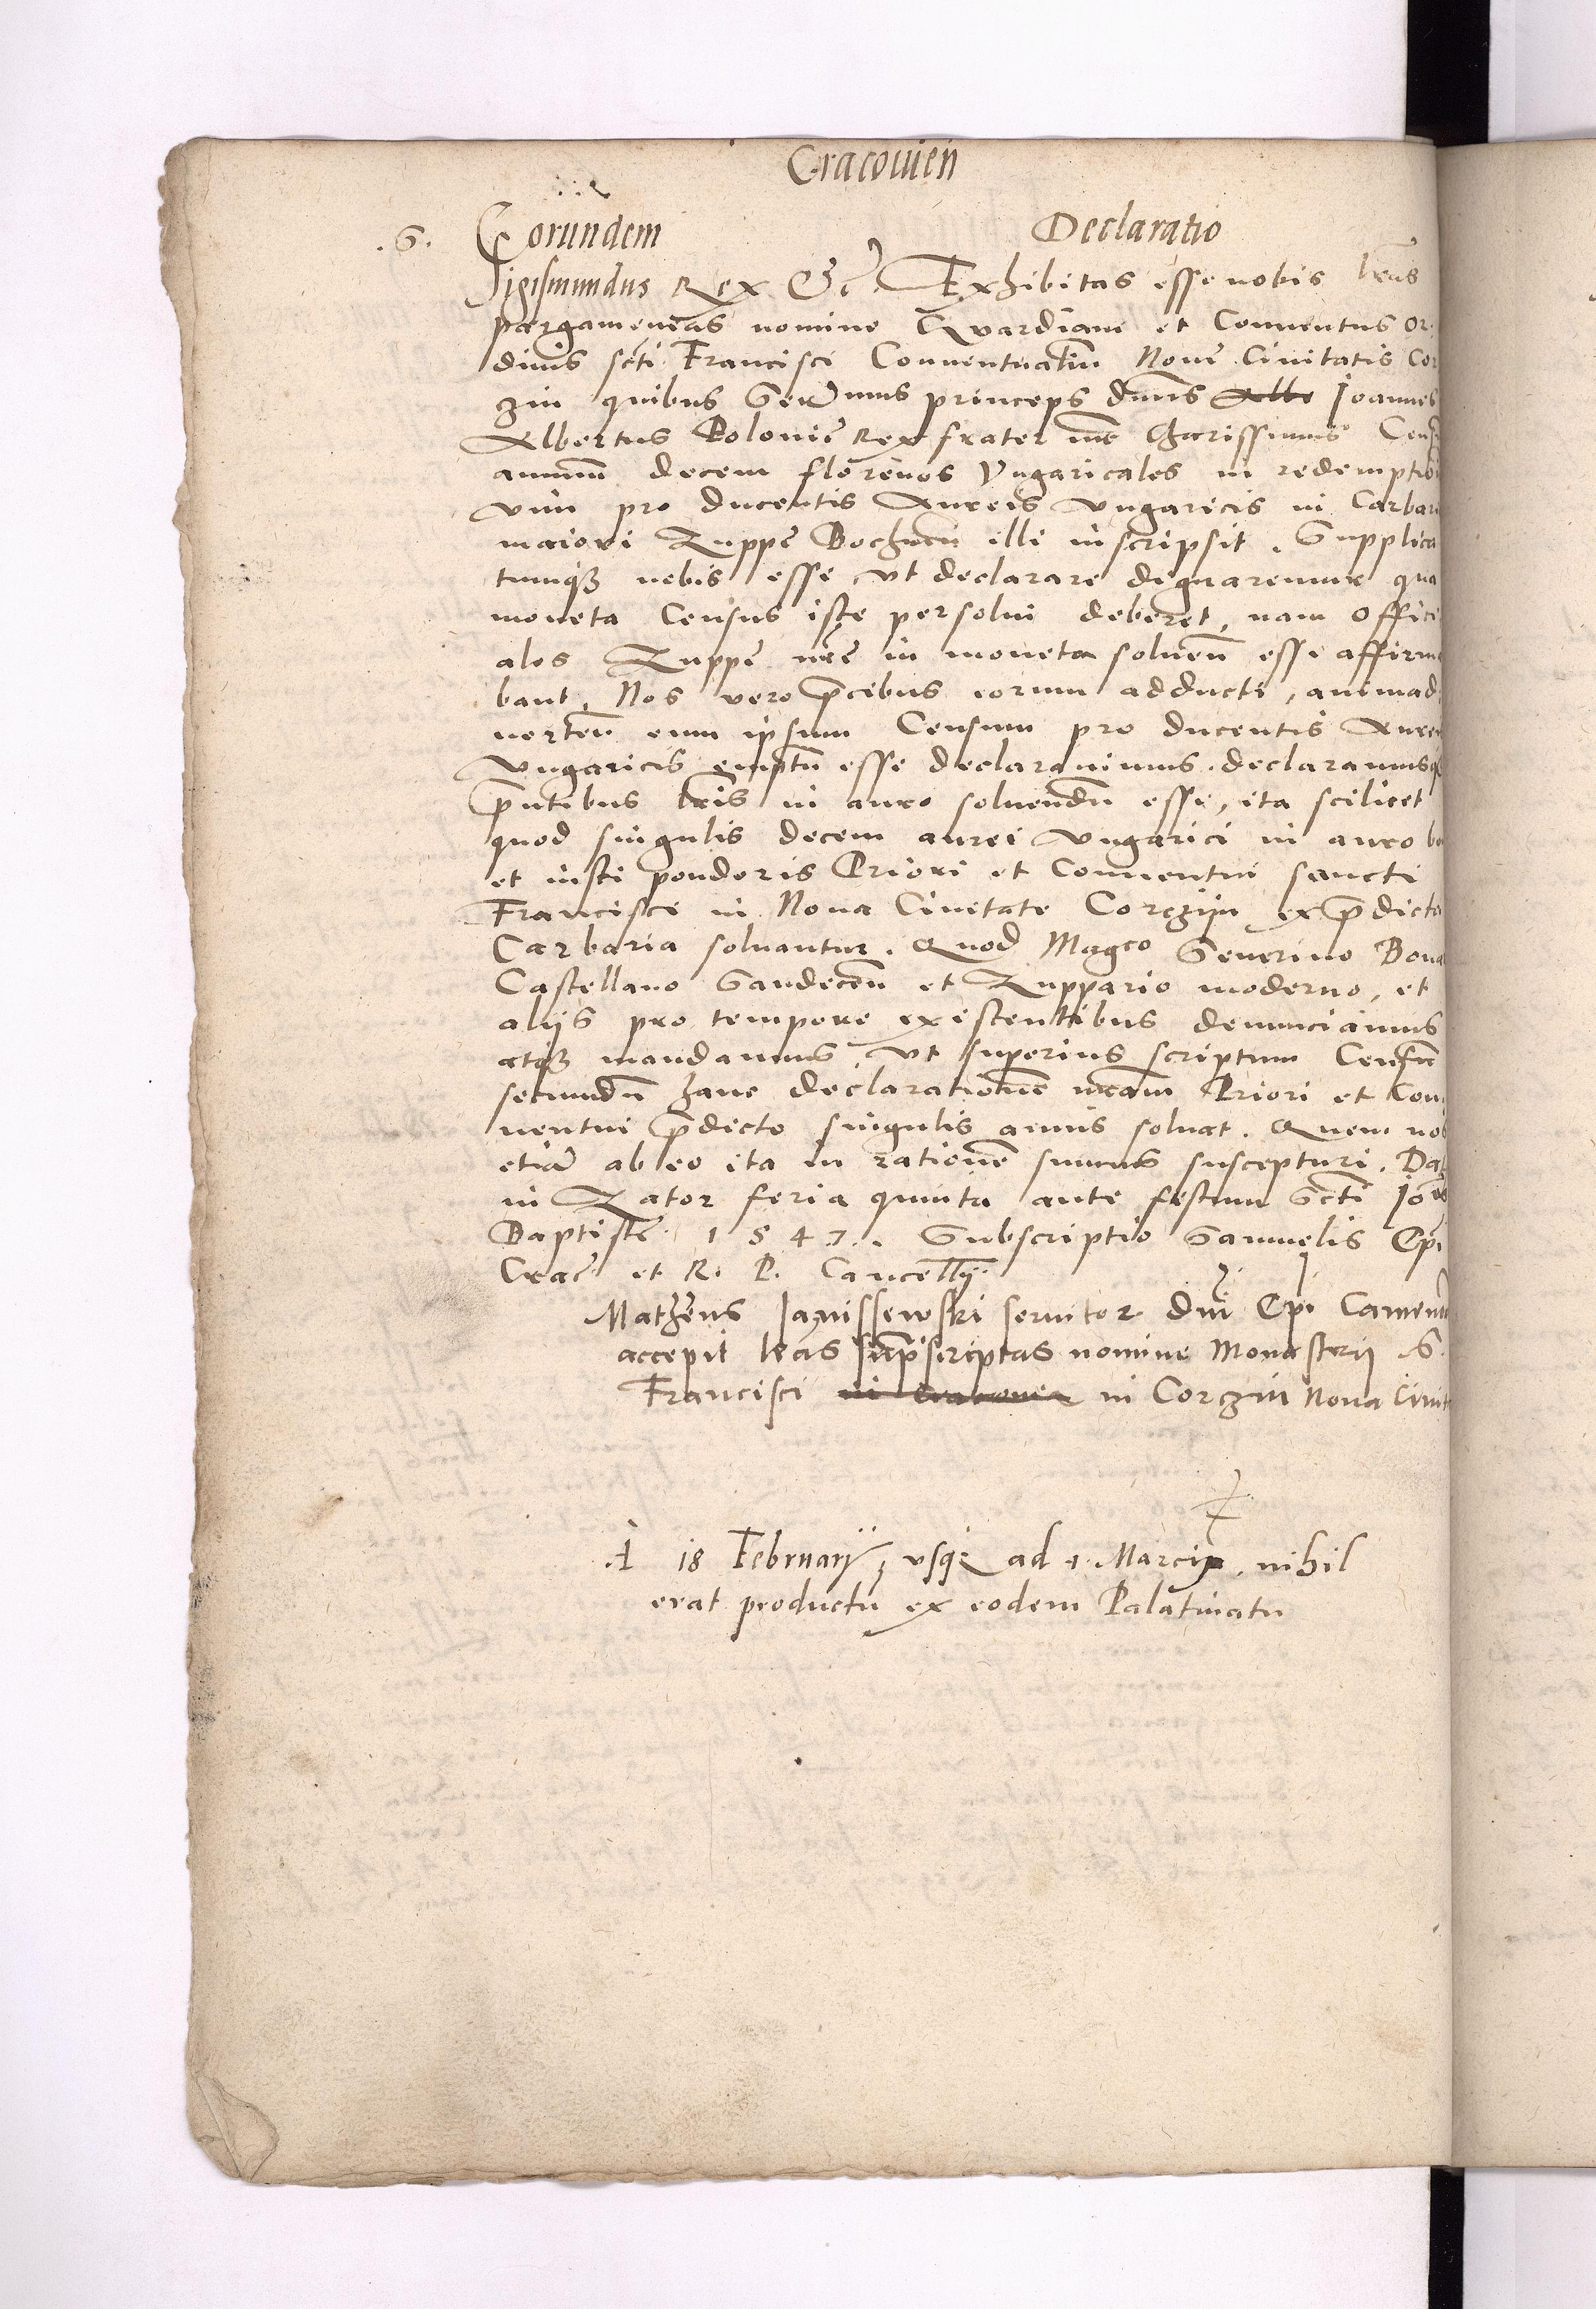 Cracouien
.6. Eorundem Declaratio
Sigismundus Rex Etc. Exhibitas esse nobis lras
pargameneas nomine Gvardiani et Conuentus or
dinis scti Francisci Conuentualiu Noue Ciuitatis Cor
zin quibus Serenimus princeps dnus Albe Joannes
Albertus Polonie Rex frater nr Charissimus Censu
annuu decem florenos Vngaricales in redemptio
vim pro ducentis Aureis vngaricis in Carbari
maiori Zuppe Bochnen illi inscripsit. Supplica
tumq3 nobis esse vt declarare dignaremur qua
moneta Census iste persolui deberet, nam offici
ales Zuppe nre in moneta soluen esse affirma
bant. Nos vero pcibus eorum adducti, animad
uerten eum ipsum Censum pro ducentis Aureis
vngaricis emptu esse declarauimus. declaramusq
pntibus lris in auro soluendu esse, ita scilicet
quod singulis decem aurei vngarici in auro bo
et iusti ponderis Priori et Conuentui sancti
Francisci in Noua Ciuitate Corczijn ex pdicta
Carbaria soluantur. Quod Magco Seuerino Bona
Castellano Sandecen et Zuppario moderno, et
alijs pro tempore existentibus denunciamus
atq3 mandamus, vt superius scriptum Censu
secundu hanc declaratione nram Priori et Con
uentui pdicto singulis annis soluat. Quem nos
etia ab eo ita in ratione sumus suscepturi. Dat
in Zator feria quinta ante festum Scti Joes
Baptiste 1547. Subscriptio Samuelis Epi
Crac et R. P. Cancellij.
Matheus Janissewski seruitor Dni Epi Camenec
accepit lras supscriptas nomine Monasterij S.
Francisci in Cracouia in Corczin Noua Ciuit
A 18 Februarij vsq ad 1. Marcij. nihil
erat productu ex eodem Palatinatu